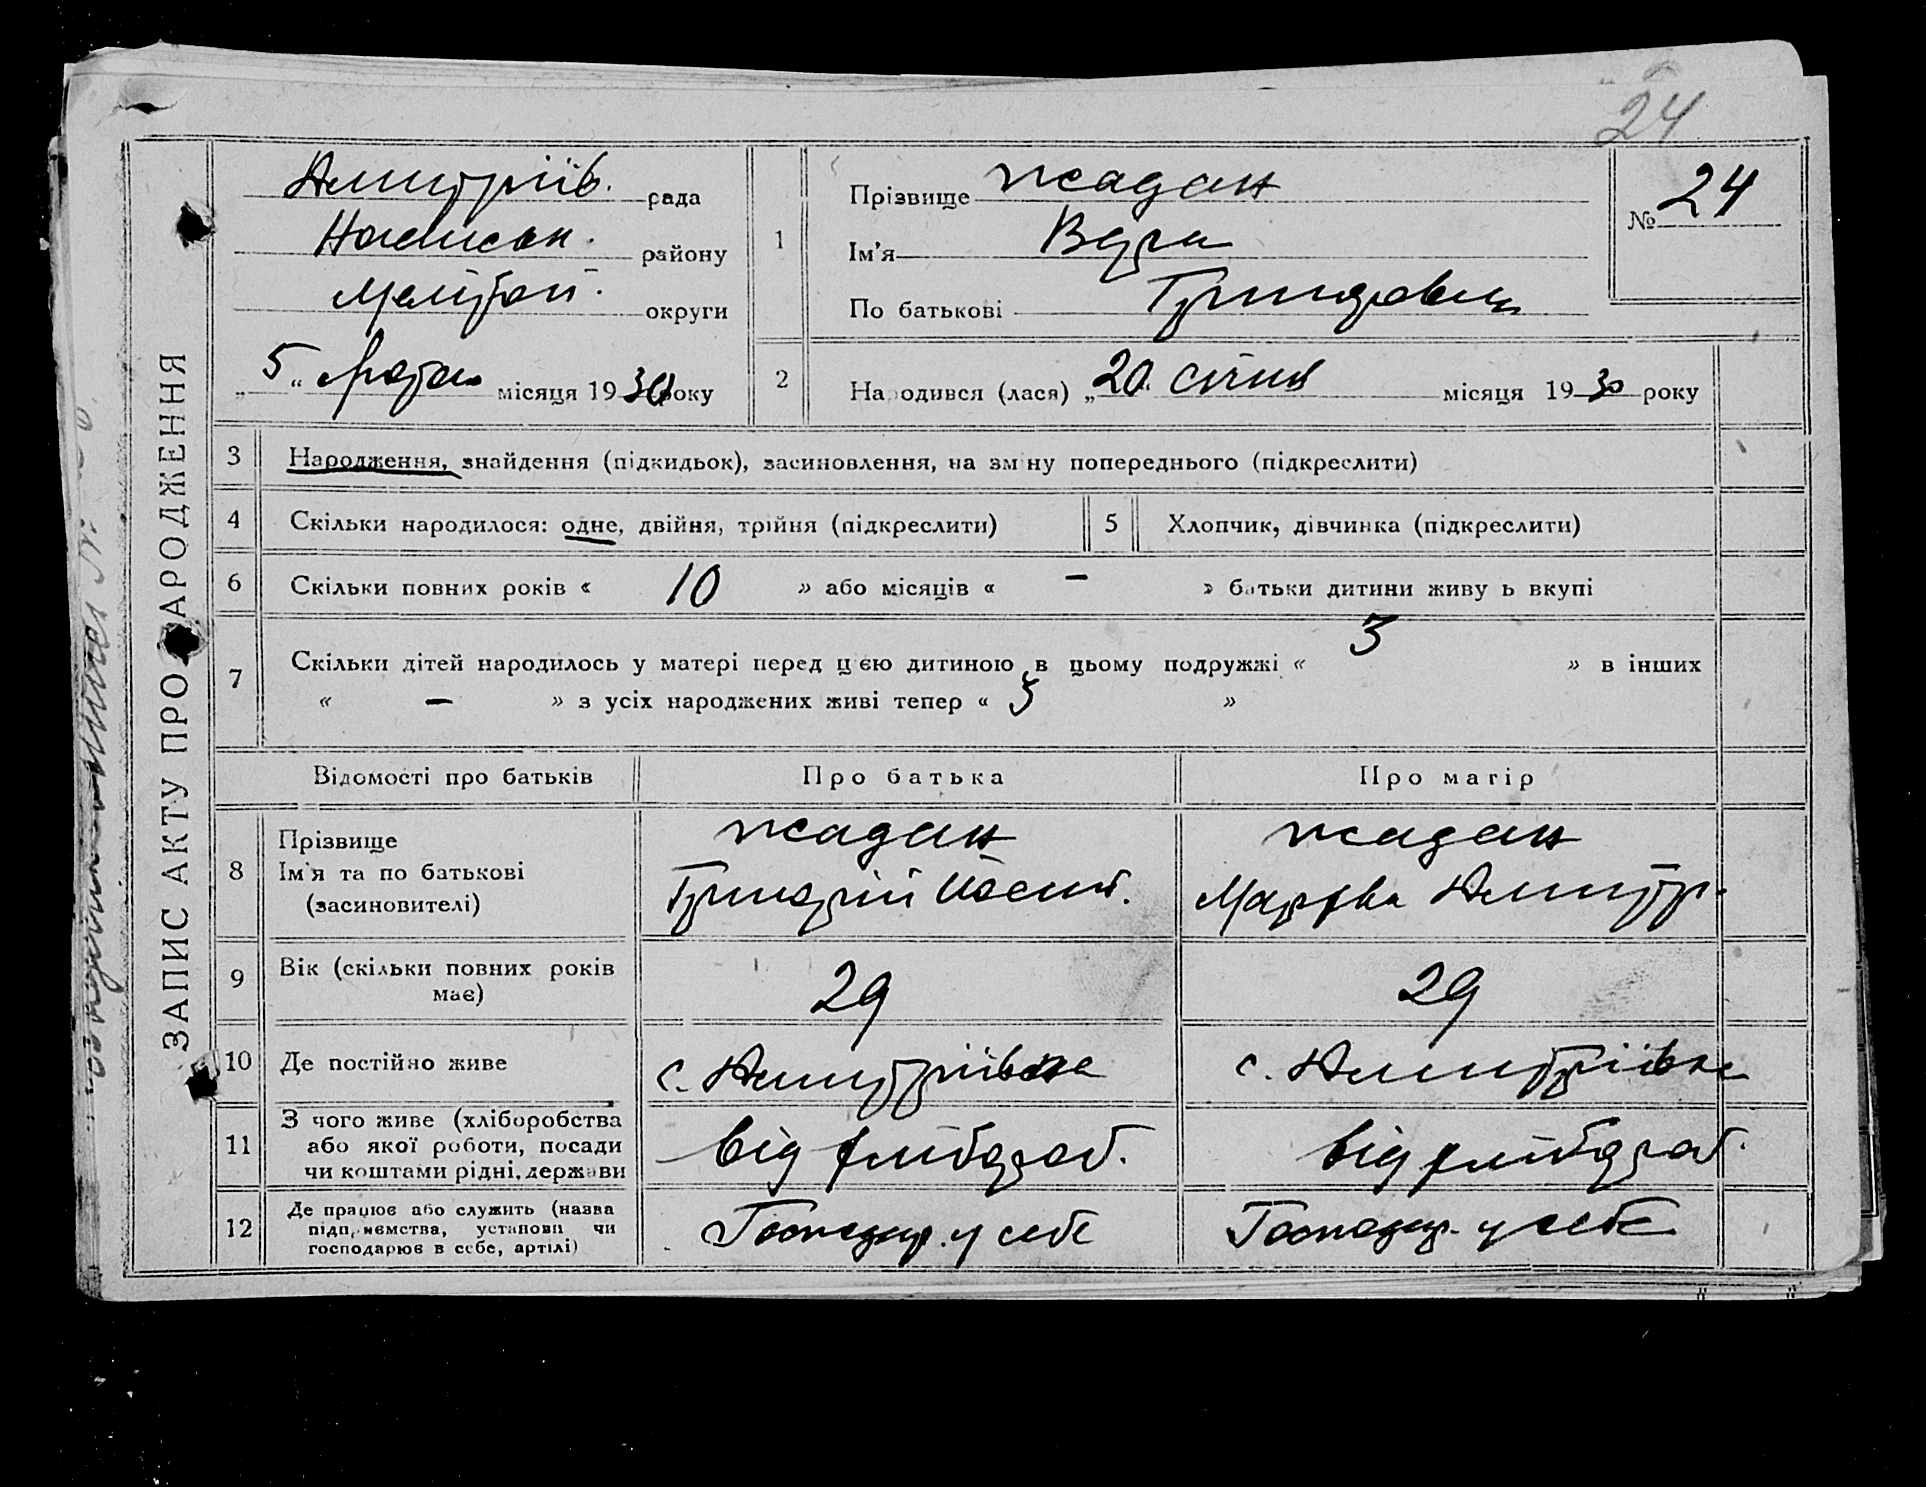 24
Дмитріїв. рада
району
Мелітоп. округи
„5“ лютого місяця 1930 року
1
Прізвище Жадан
Ім'я Віра
По батькові Григоровна
№ 24
2
Народився (лася) „20“ січня місяця 1930 року
ЗАПИС АКТУ ПРО НАРОДЖЕННЯ
3 Народження, знайдення (підкидьок), засиновлення, на зміну попереднього (підкреслити)
4 Скільки народилося: одне, двійня, трійня (підкреслити)
5 Хлопчик, дівчинка (підкреслити)
6 Скільки повних років « 10 » або місяців « – » батьки дитини живуть вкупі
7 Скільки дітей народилось у матері перед цією дитиною в цьому подружжі « 3 » в інших
« – » з усіх народжених живі тепер « 3 »
Відомості про батьків Про батька Про матір
8
Прізвище
Ім'я та по батькові
(засиновителі)
Жадан
Григорій Йосип.
Жадан
Марфа Дмитр.
9
Вік (скільки повних років
має)
29
29
10 Де постійно живе
с. Дмитріївка
с. Дмитріївка
11
З чого живе (хліборобства
або якої роботи, посади
чи коштами рідні, держави
від хлібороб.
від хлібороб.
12
Де працює або служить (назва
підприємства, установи чи
господарює в себе, артілі)
Господар. у себе
Господар. у себе